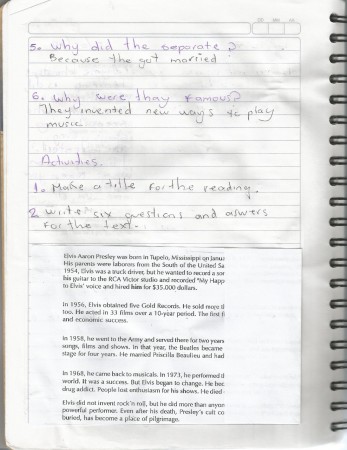 5. Why did the separate?
Because the got married
6. Why were they famous?
They invented new ways to play
music.
Activities.
1. Make a title for the reading.
2. write six questions and aswers
For the text.
Elvis Aaron Presley was born in Tupelo, Mississippi on Janu
His parents were laborers from the South of the United Sa
1954, Elvis was a truck driver, but he wanted to record a sor
his guitar to the RCA Victor studio and recorded "My Happ
to Elvis' voice and hired him for $35.000 dollars.
In 1956, Elvis obtained five Gold Records. He sold more tl
too. He acted in 33 films over a 10-year period. The first fi
and economic success.
In 1958, he went to the Army and served there for two years
songs, films and shows. In that year, the Beatles became
stage for four years. He married Priscilla Beaulieu and had
In 1968, he came back to musicals. In 1973, he performed tl
world. It was a success. But Elvis began to change. He bec
drug addict. People lost enthusiasm for his shows. He died
Elvis did not invent rock'n roll, but he did more than anyon
powerful performer. Even after his death, Presley's cult co
buried, has become a place of pilgrimage.